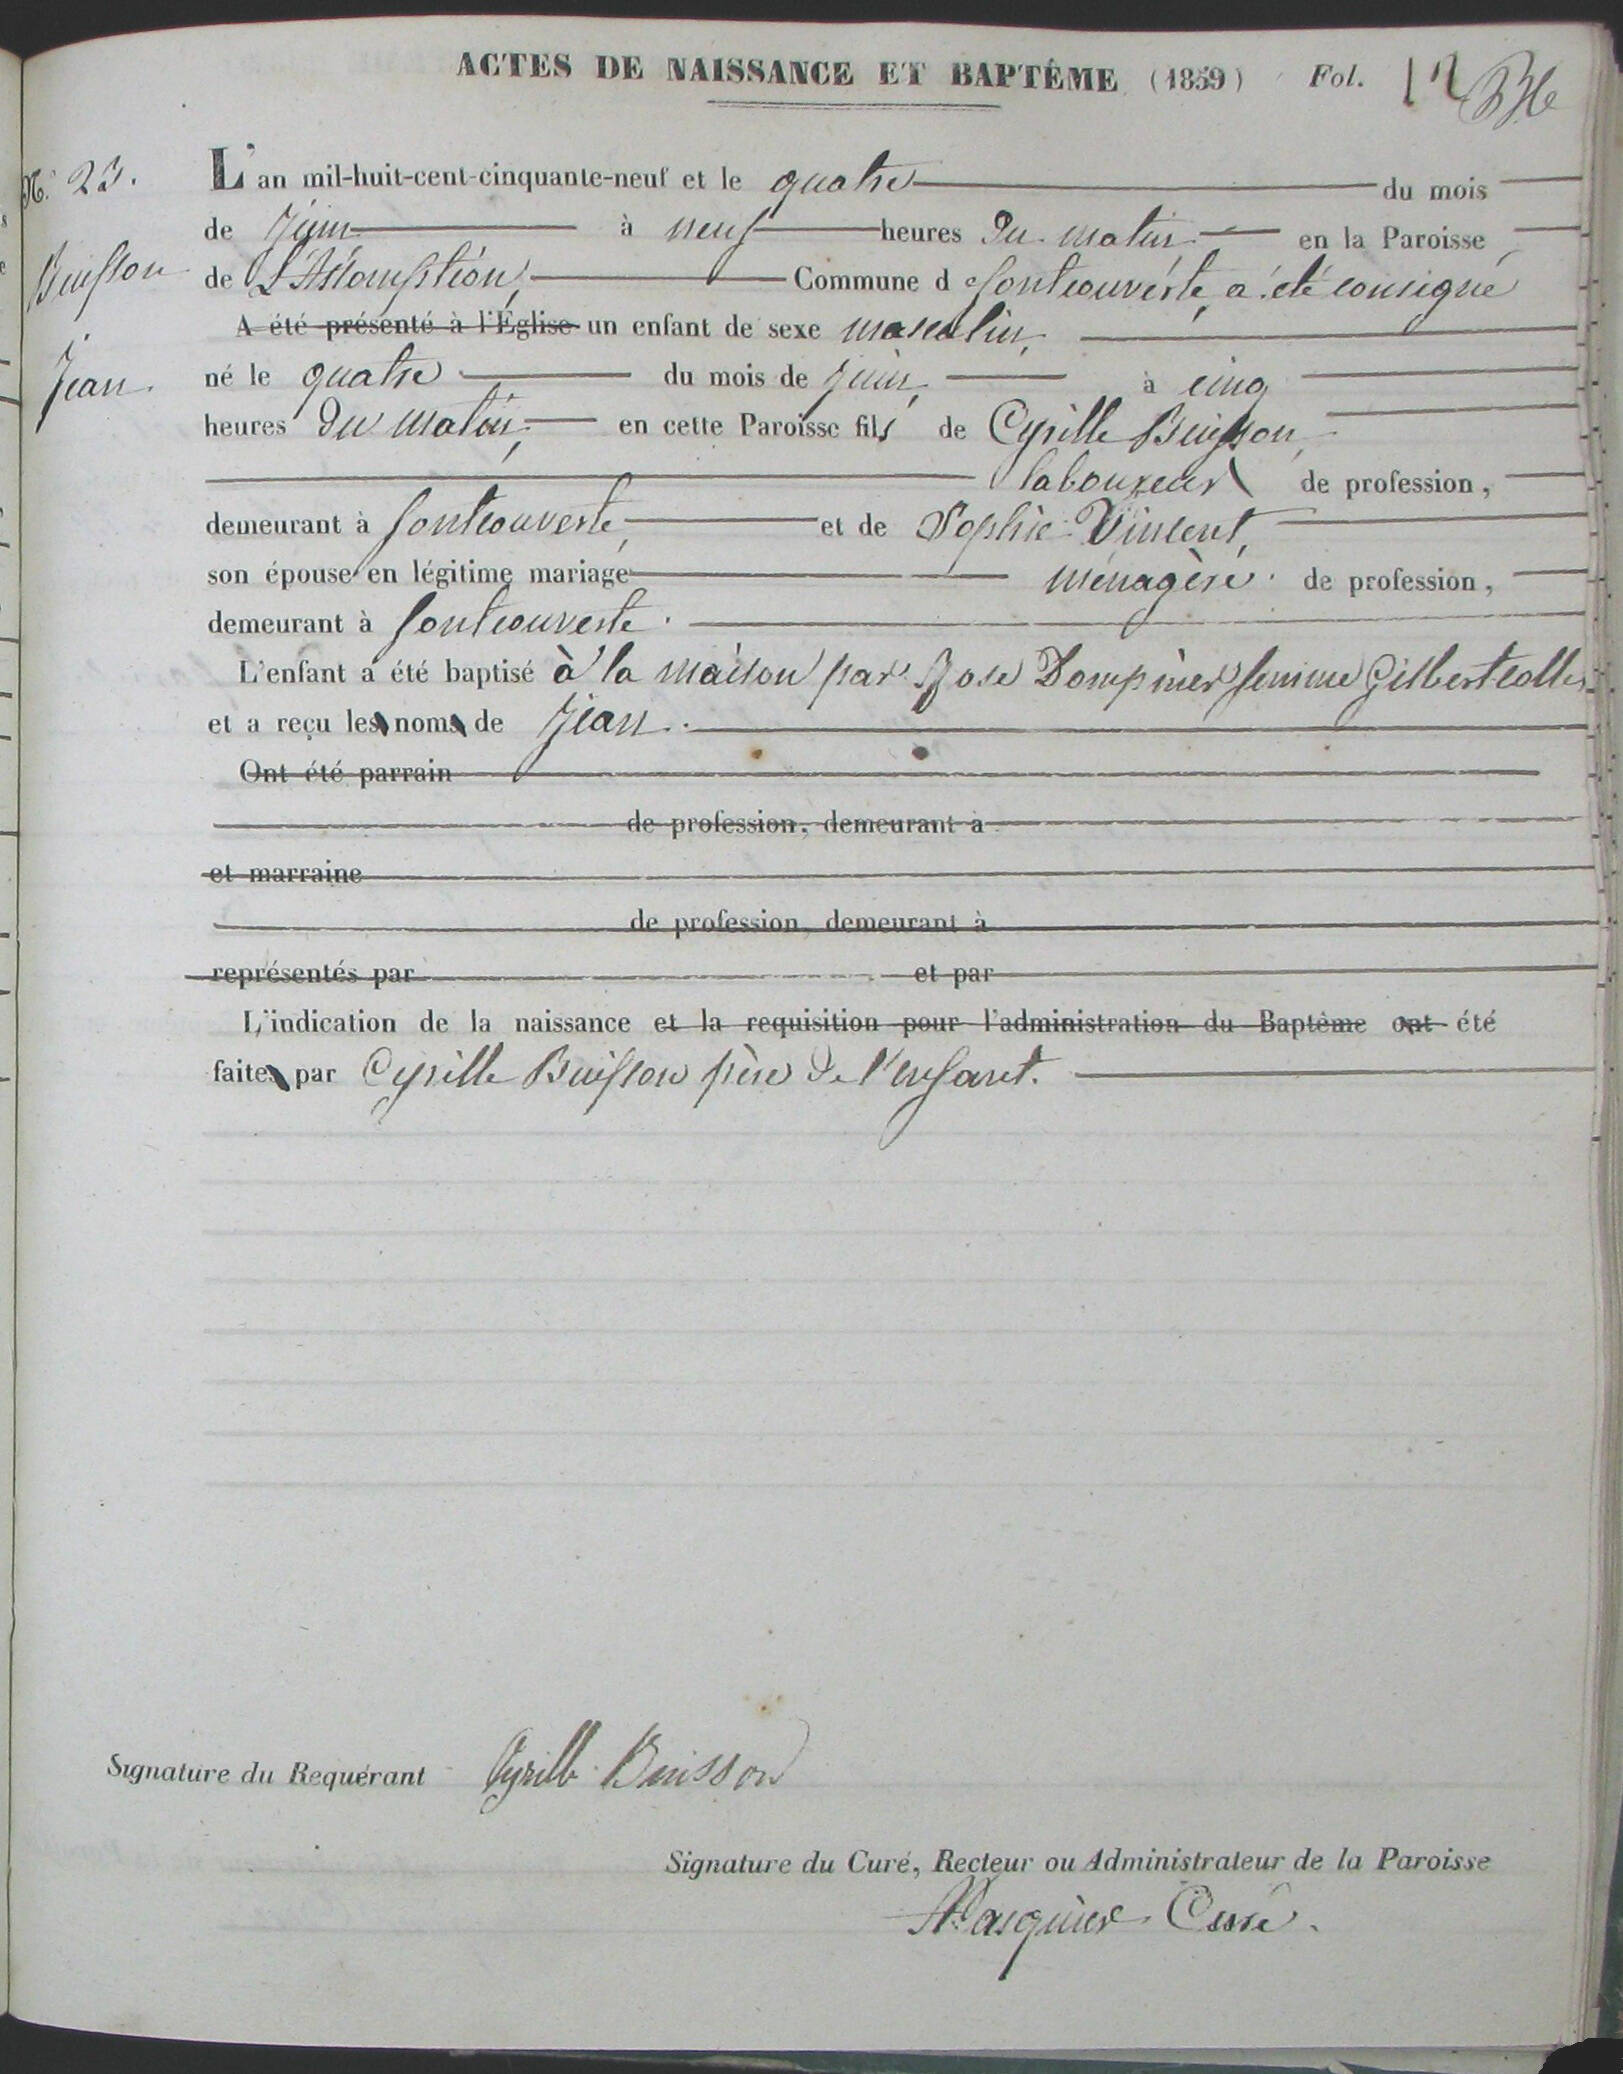 ACTES DE NAISSANCE ET BAPTÊME (1859) Fol. 12
N.° 23.
Buisson
Jean.
L'an mil-huit-cent-cinquante-neuf et le quatre du mois
de juin à neuf heures du matin en la Paroisse
de L'Assomption, Commune d fontcouverte, a été consigné
A été présenté à l'Église un enfant de sexe masculin,
né le quatre du mois de juin, à cinq
heures du matin, en cette Paroisse fils de Cyrille Buisson,
laboureur de profession,
demeurant à fontcouverte, et de Sophie Vincent,
son épouse en légitime mariage ménagère de profession,
demeurant à fontcouverte.
L'enfant a été baptisé à la maison par Rose Dompnier femme Gilbert collet
et a reçu les noms de Jean.
Ont été parrain
de profession, demeurant à
et marraine
de profession, demeurant à
représentés par et par
L'indication de la naissance et la requisition pour l'administration du Baptême ont été
faites par Cyrille Buisson père de l'enfant.
Signature du Requérant Cyrille Buisson
Signature du Curé, Recteur ou Administrateur de la Paroisse
Pasquier Curé.